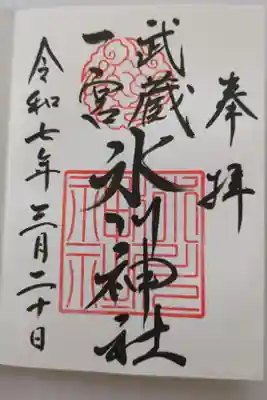 奉拝
武蔵
一宮
氷川神社
令和七年三月二十日
氷川
神社